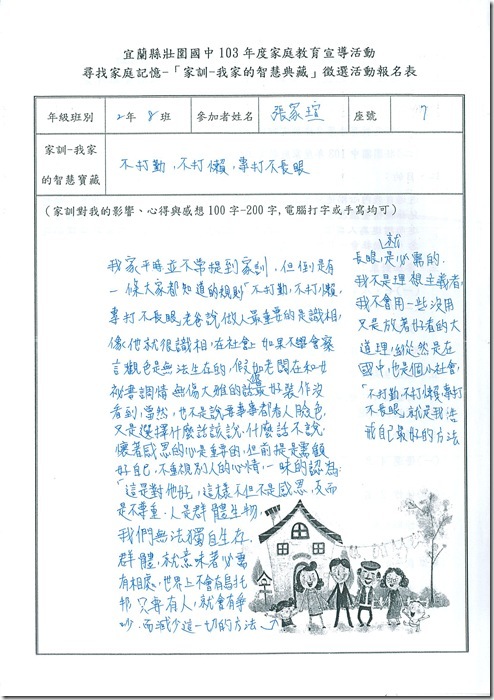 宜蘭縣壯圍國中 103 年度家庭教育宣導活動
尋找家庭記憶-「家訓-我家的智慧典藏」徵選活動報名表
年級班別 2年 8 班 參加者姓名 張家瑄 座號 7
家訓-我家的智慧寶藏 不打勤,不打懶,專打不長眼
(家訓對我的影響、心得與感想 100 字-200 字,電腦打字或手寫均可)
我家平時並不常提到家訓,但倒是有
一條大家都知道的規則「不打勤,不打懶,
專打不長眼」老爸說,做人最重要的是識相,
像他就很識相,在社會上如果不學會察
言觀色是無法生存的,假如老闆在和女
祕書調情,無傷大雅的話,最好裝作沒
看到,當然,也不是說要事事都看人臉色,
只是選擇什麼話該說,什麼話不說.
懷著感恩的心是重要的,但前提是要顧
好自己,不重視別人的心情,一昧的認為:
「這是對他好」,這樣不但不是感恩,反而
是不尊重.人是群體生物,
我們無法獨自生存.
群體,就意味著必需
有相處,世界上不會有烏托
邦,只要有人,就會有爭
吵,而減少這一切的方法→
長眼,就是必需的.
我不是理想主義者,
我不會用一些沒用
又是放著好看的大
道理,縱然是在
國中,也是個小社會,
「不打勤,不打懶,專打
不長眼」就是我告
戒自己最好的方法